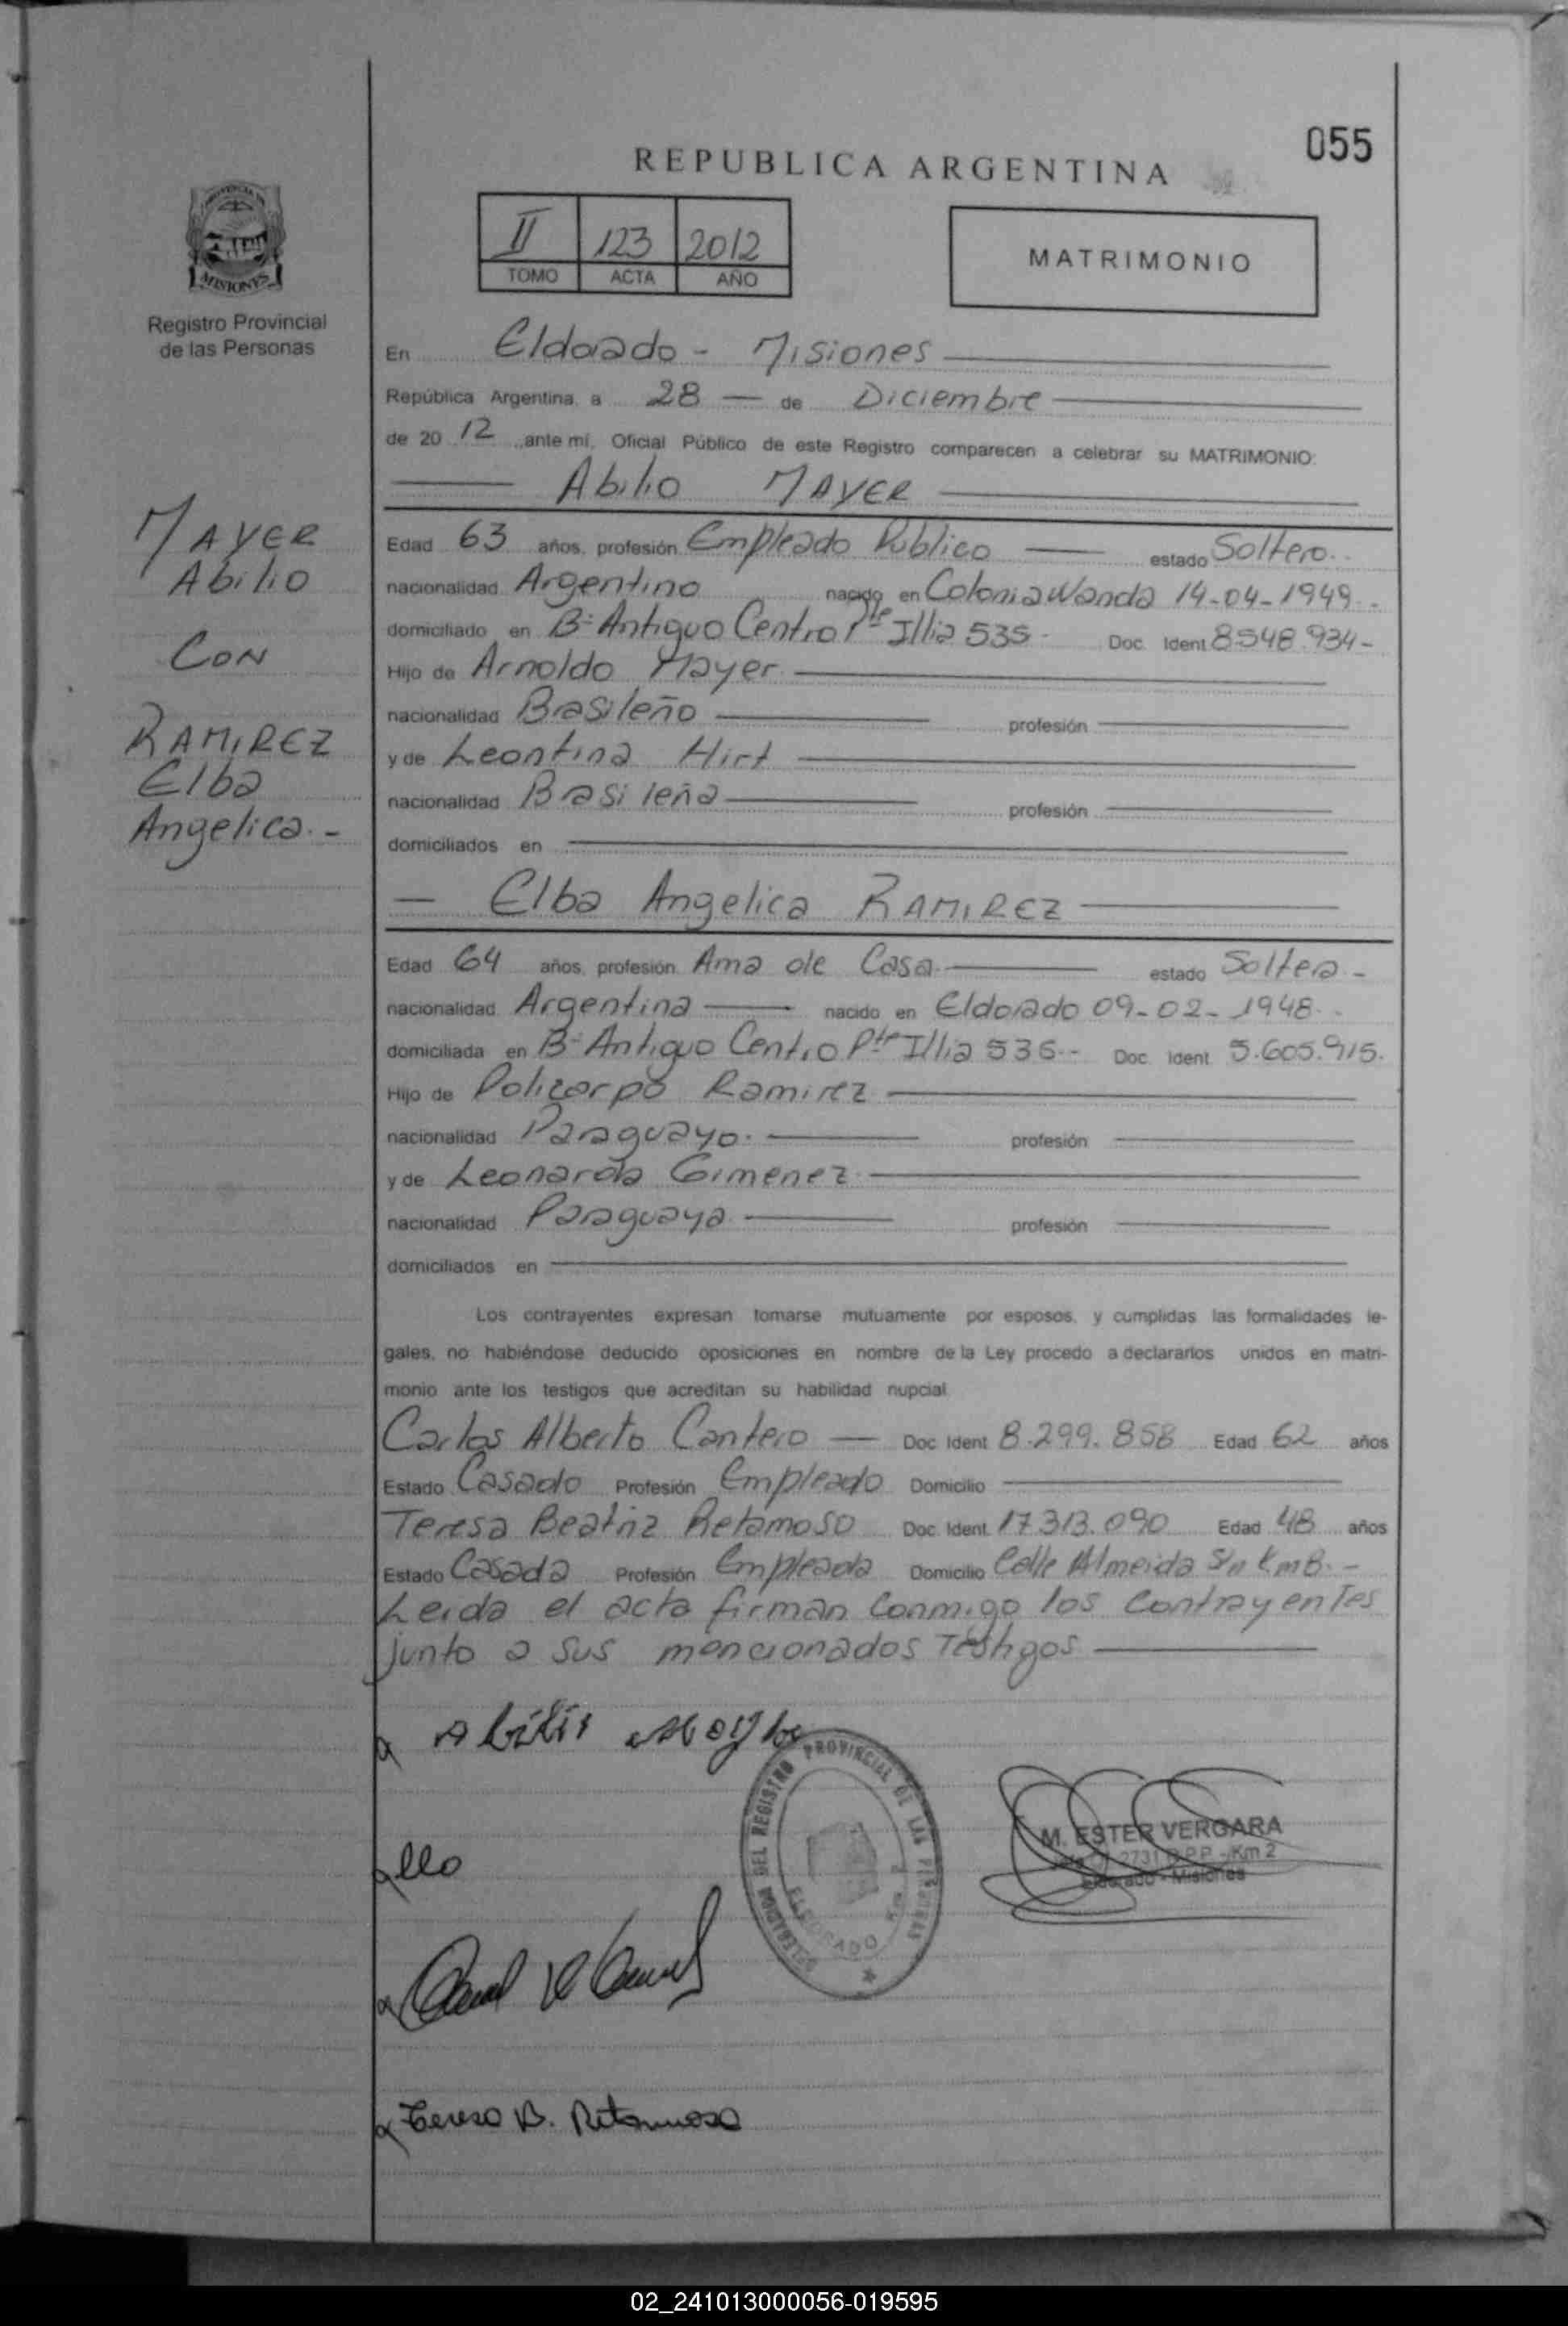 055
REPUBLICA ARGENTINA
II 123 2012
TOMO ACTA AÑO
MATRIMONIO
MISIONES
Registro Provincial
de las Personas
MAYER
Abilio
CON
RAMIREZ
Elba
Angelica.-
En Eldorado - Misiones
República Argentina, a 28 — de Diciembre
de 2012 ante mí, Oficial Público de este Registro comparecen a celebrar su MATRIMONIO:
Abilio MAYER
Edad 63 años, profesión Empleado Publico — estado Soltero.
nacionalidad Argentino nacido en Colonia Wanda 14-04-1949.-
domiciliado en Bº Antiguo Centro Pte Illia 535- Doc. Ident. 8548.934-
Hijo de Arnoldo Mayer
nacionalidad Brasileño profesión
y de Leontina Hirt
nacionalidad Brasileña profesión
domiciliados en
— Elba Angelica RAMIREZ
Edad 64 años, profesión Ama de Casa. estado Soltera-
nacionalidad Argentina — nacido en Eldorado 09-02-1948.
domiciliada en Bº Antiguo Centro Pte Illia 535-- Doc. Ident. 5.605.915.
Hijo de Policarpo Ramirez
nacionalidad Paraguayo. profesión
y de Leonarda Gimenez
nacionalidad Paraguaya profesión
domiciliados en
Los contrayentes expresan tomarse mutuamente por esposos, y cumplidas las formalidades le-
gales, no habiéndose deducido oposiciones en nombre de la Ley procedo a declararlos unidos en matri-
monio ante los testigos que acreditan su habilidad nupcial.
Carlos Alberto Cantero — Doc. Ident. 8.299.858 Edad 62 años
Estado Casado Profesión Empleado Domicilio
Teresa Beatriz Retamoso Doc. Ident. 17.313.090 Edad 48 años
Estado Casada Profesión Empleada Domicilio Calle Almeida S/n Km8.-
Leida el acta firman Conmigo los Contrayentes
junto a sus mencionados Testigos
Abilio Mayer
DELEGACION DEL REGISTRO PROVINCIAL DE LAS PERSONAS
ELDORADO Km. 2
M. ESTER VERGARA
2731 R.P.P. - Km 2
Eldorado - Misiones
Teresa B. Retamoso
02_241013000056-019595